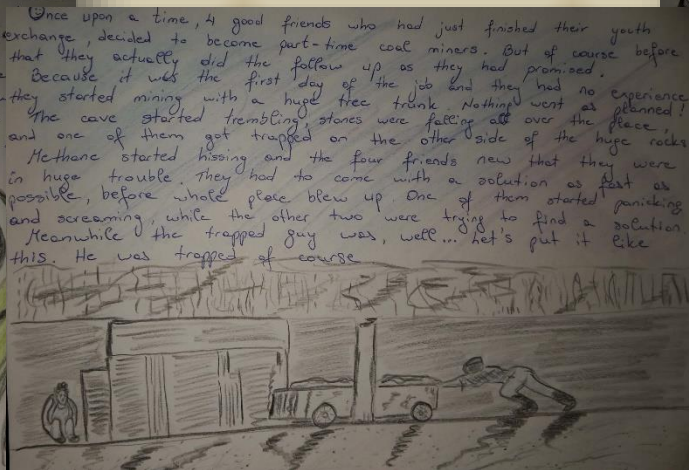 Once upon a time, 4 good friends who had just finished their youth
exchange, decided to become part-time coal miners. But of course before
that they actually did the follow up as they had promised.
Because it was the first day of the job and they had no experience
they started mining with a huge tree trunk. Nothing went as planned!
The cave started trembling, stones were falling all over the place,
and one of them got trapped on the other side of the huge rocks
Methane started hissing and the four friends new that they were
in huge trouble. They had to come with a solution as fast as
possible, before whole place blew up. One of them started panicking
and screaming, while the other two were trying to find a solution.
Meanwhile the trapped guy was, well... Let's put it like
this. He was trapped of course